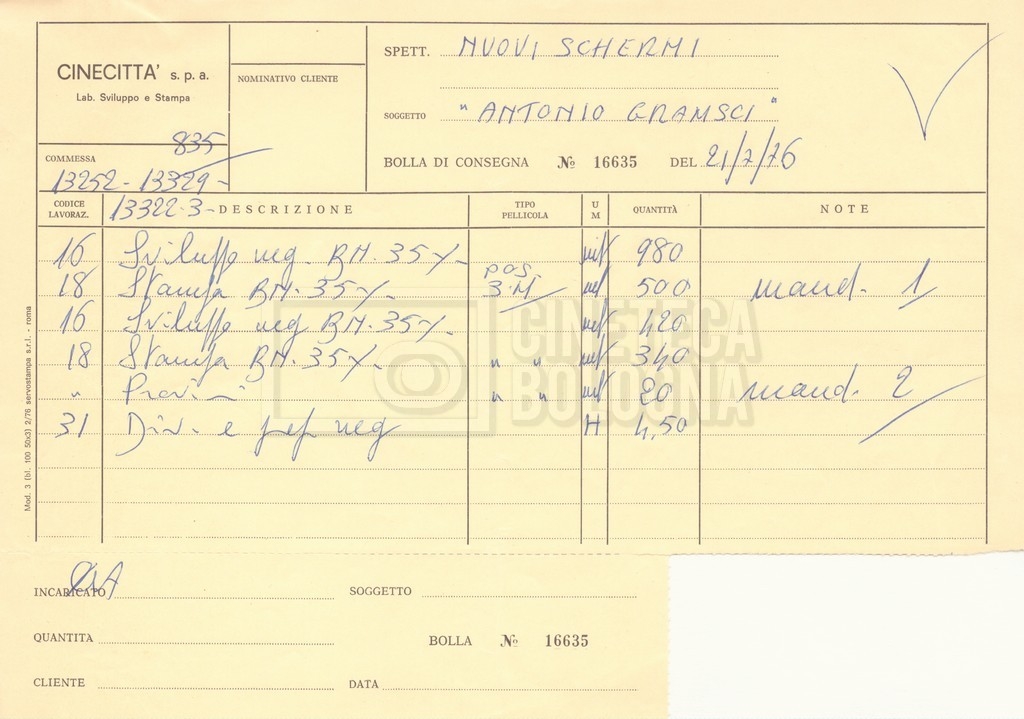 CINECITTA' s. p. a.
Lab. Sviluppo e Stampa
835
COMMESSA
13252 - 13329 -
NOMINATIVO CLIENTE
SPETT. NUOVI SCHERMI
SOGGETTO "ANTONIO GRAMSCI"
BOLLA DI CONSEGNA № 16635 DEL 21/7/76
CODICE LAVORAZ. 13322-3 - DESCRIZIONE TIPO PELLICOLA U M QUANTITÀ NOTE
16 Sviluppo neg. BN. 35 mt 980
18 Stampa BN. 35 pos. 3.M mt 500 mand. 1
16 Sviluppo neg BN. 35 mt 420
18 Stampa BN. 35 " " mt 340
" Provini " " mt 20 mand. 2
31 Div. e prep neg H 4,50
CINETECA
BOLOGNA
Mod. 3 (bl. 100 50x3) 2/76 servostampa s.r.l. - roma
INCARICATO SOGGETTO
QUANTITA BOLLA № 16635
CLIENTE DATA